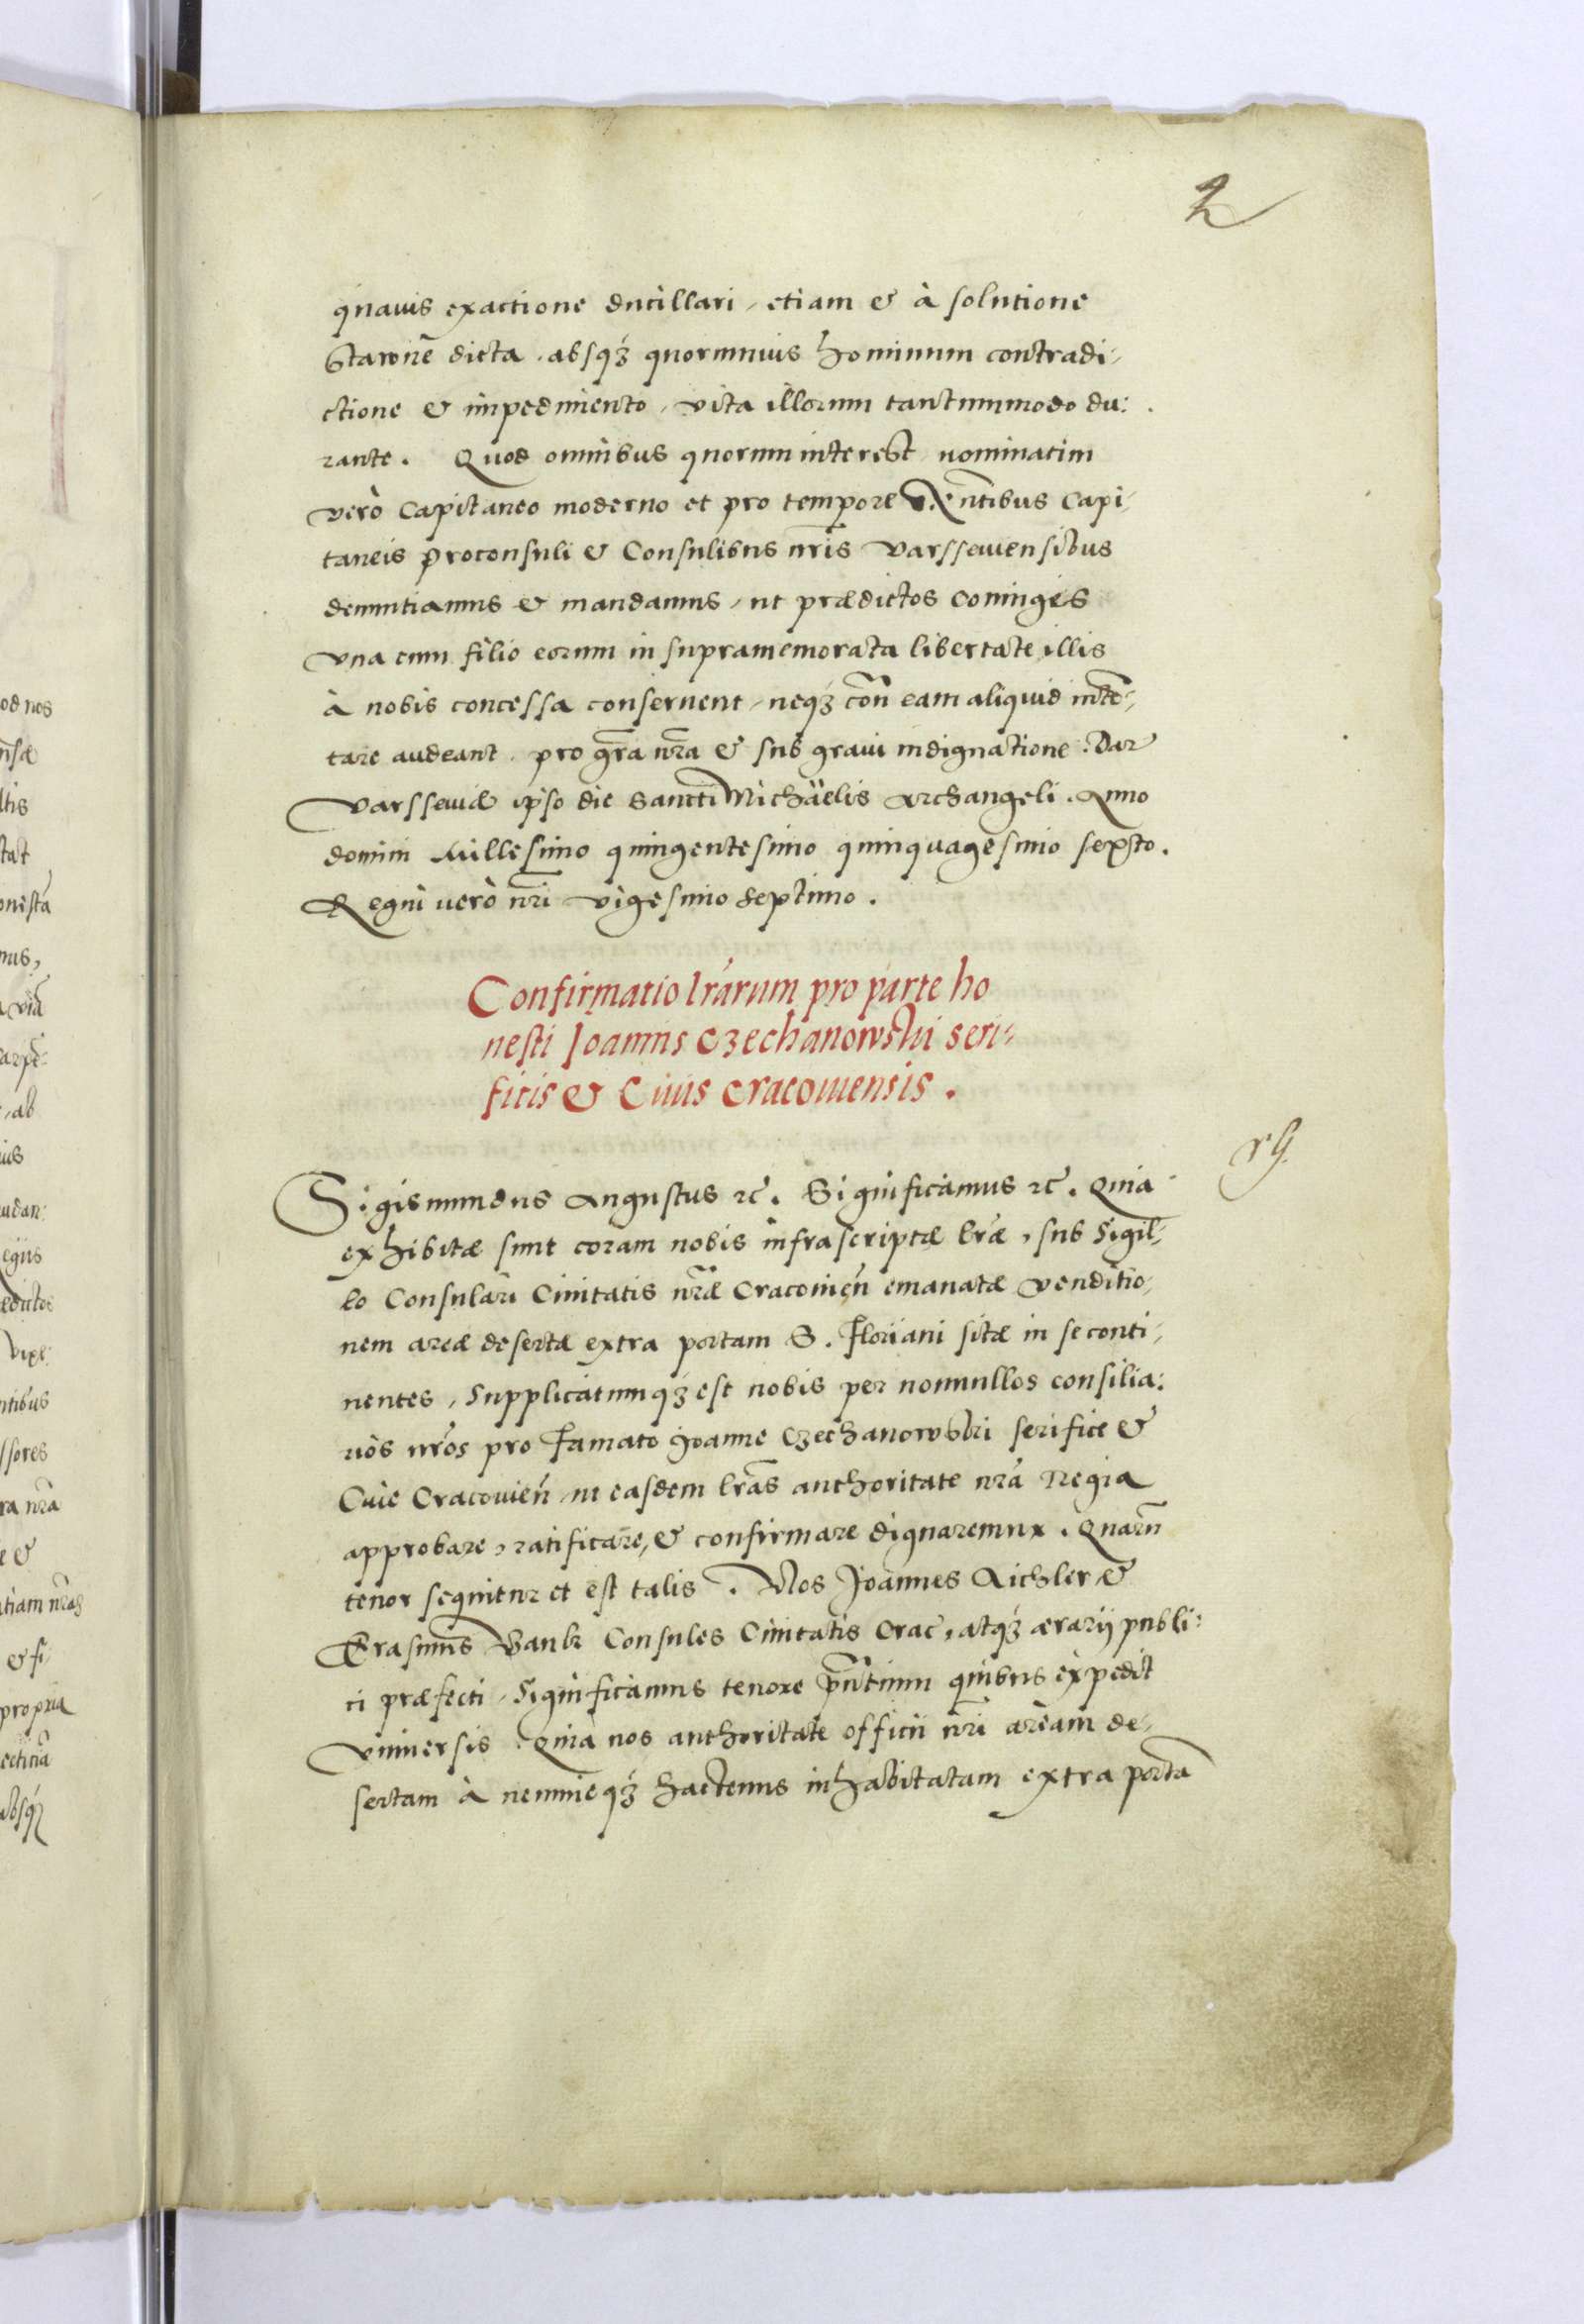 2
quauis exactione ducillari, etiam & à solutione
Starone dicta, absq3 quorumuis hominum contradi,
ctione & impedimento, vita illorum tantummodo du:
rante. Quod omnibus quorum interest nominatim
verò Capitaneo moderno et pro tempore exn̄tibus Capi,
taneis proconsuli & Consulibus nr̄is Varsseuiensibus
denuntiamus & mandamus, ut prædictos Coniuges
vna cum filio eorum in supramemorata libertate illis
à nobis concessa conseruent, neq3 cōn eam aliquid inte,
tare audeant, pro gr̄a nr̄a & sub graui indignatione. Dat
Varsseuiæ ipso die Sancti Michäelis Archangeli. Anno
domini Millesimo quingentesimo quinquagesimo sexto.
Regni uerò nr̄i vigesimo septimo.
Confirmatio lr̄arum pro parte ho
nesti Joannis Czechanowski seri,
ficis & Ciuis Cracouiensis.
Sigismundus Augustus ꝛc̄. Significamus ꝛc̄. Quia
exhibitæ sunt coram nobis infrascriptæ lr̄æ, sub Sigil,
lo Consulari Ciuitatis nr̄æ Cracouien̄ emanatæ venditio,
nem areæ desertæ extra portam S. Floriani sitæ in se conti,
nentes, Supplicatumq3 est nobis per nonnullos consilia:
rios nr̄os pro Famato Joanne Czechanowski serifice &
Ciue Cracouien̄, ut easdem lr̄as authoritate nr̄a Regia
approbare, ratificare, & confirmare dignaremur. Quarū
tenor sequitur et est talis. Nos Joannes Aichler &
Erasmus Bank Consules Ciuitatis Crac̄, atq3 ærarij publi:
ci præfecti, Significamus tenore pn̄tium quibus expedit
vniuersis. Quia nos authoritate officii nr̄i aream de,
sertam à nemineq3 hactenus inhabitatam extra portā